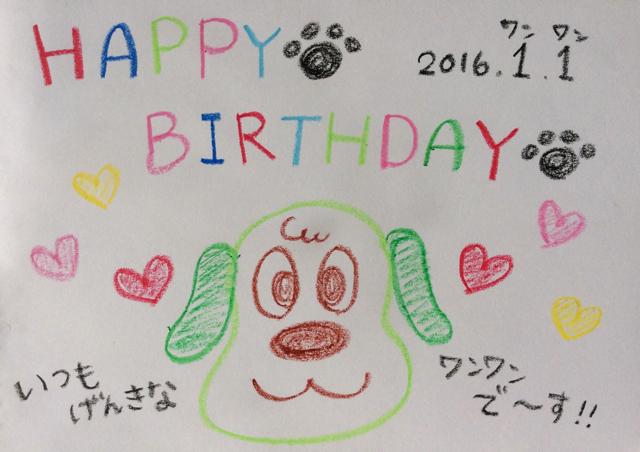 HAPPY
ワン ワン
2016.1.1
BIRTHDAY
いつも
げんきな
ワンワン
で〜す!!